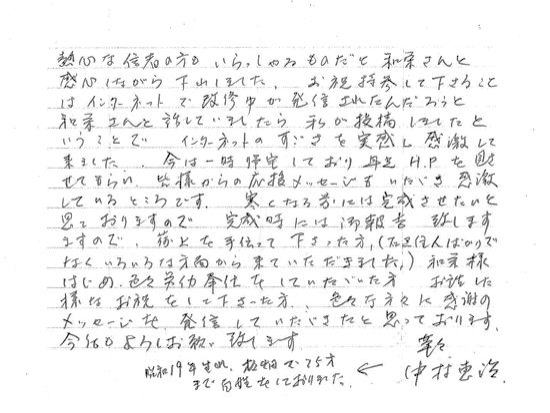 熱心な信者の方もいらっしゃるものだと和栄さんと
感心しながら下山しました。お祝持参して下さること
はインターネットで改修中が発信されたんだろうと
和栄さんと話していましたら私が投稿しましたと
いうことで インターネットのすごさを実感し感激して
来ました。今は一時帰宅しており再度H.Pを
せてもらい 皆様からの応援メッセージをいただき感激
しているところです。寒くなる前には完成させたいと
思っておりますので 完成時には御報告致します
ますので、荷上を手伝って下さった方、(ただ住人ばかりで
なくいろいろな方面から来ていただきました。)和栄様
はじめ、色々労力奉仕をしていただいた方 お話した
様なお祝をして下さった方、色々な方々に感謝の
メッセージを、発信していただきたいと思っております。
今後もよろしくお願い致します 草々
昭和19年生れ、板畑で25才
まで自炊をしておりました。← 中村恵治